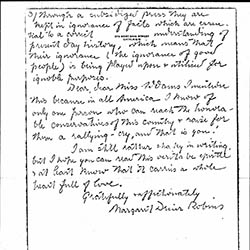 3) Through a subsidized press they are
kept in ignorance of facts which are essen-
tial to a correct understanding of
present day history, which means that
their ignorance (the ignorance of good
people) is being played upon & utilized for
ignoble purposes.
Dear, dear Miss Addams I write
this because in all America I know of
only one person who can reach the honor-
able conservatives of this country & raise for
them a rallying-cry, and that is you.
I am still rather shaky in writing
but I hope you can read this
& at least know that it carries a whole
heart full of love.
Gratefully affectionately
Margaret Dreier Robins